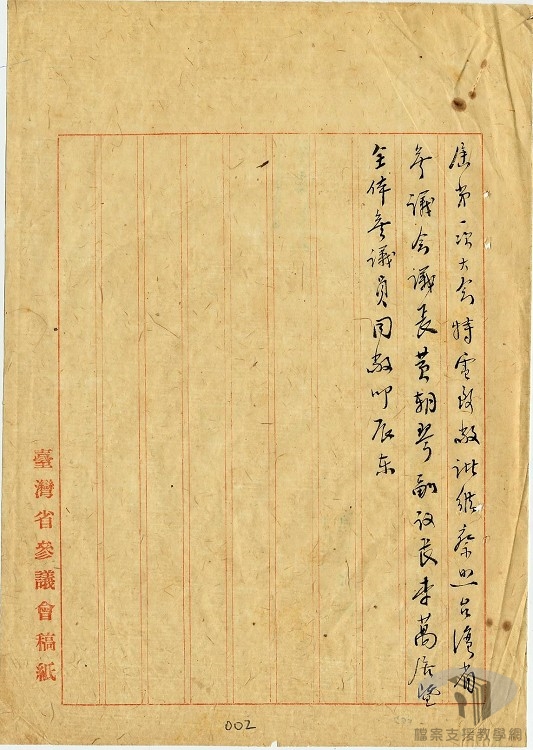 屆第一次大会特電致敬諸維察照台湾省
參議会議長黃朝琴副议长李萬居暨
全体參議員同敬叩辰东
臺灣省參議會稿紙
002
檔案支援教學網